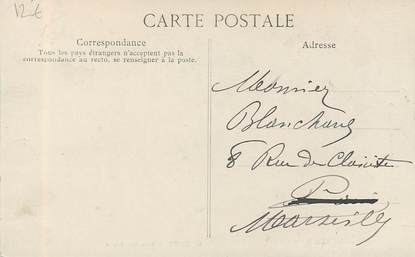 12€
CARTE POSTALE
Correspondance
Tous les pays étrangers n'acceptent pas la
correspondance au recto, se renseigner à la poste.
Adresse
Monsieur
Blanchard
8 Rue du
Marseille